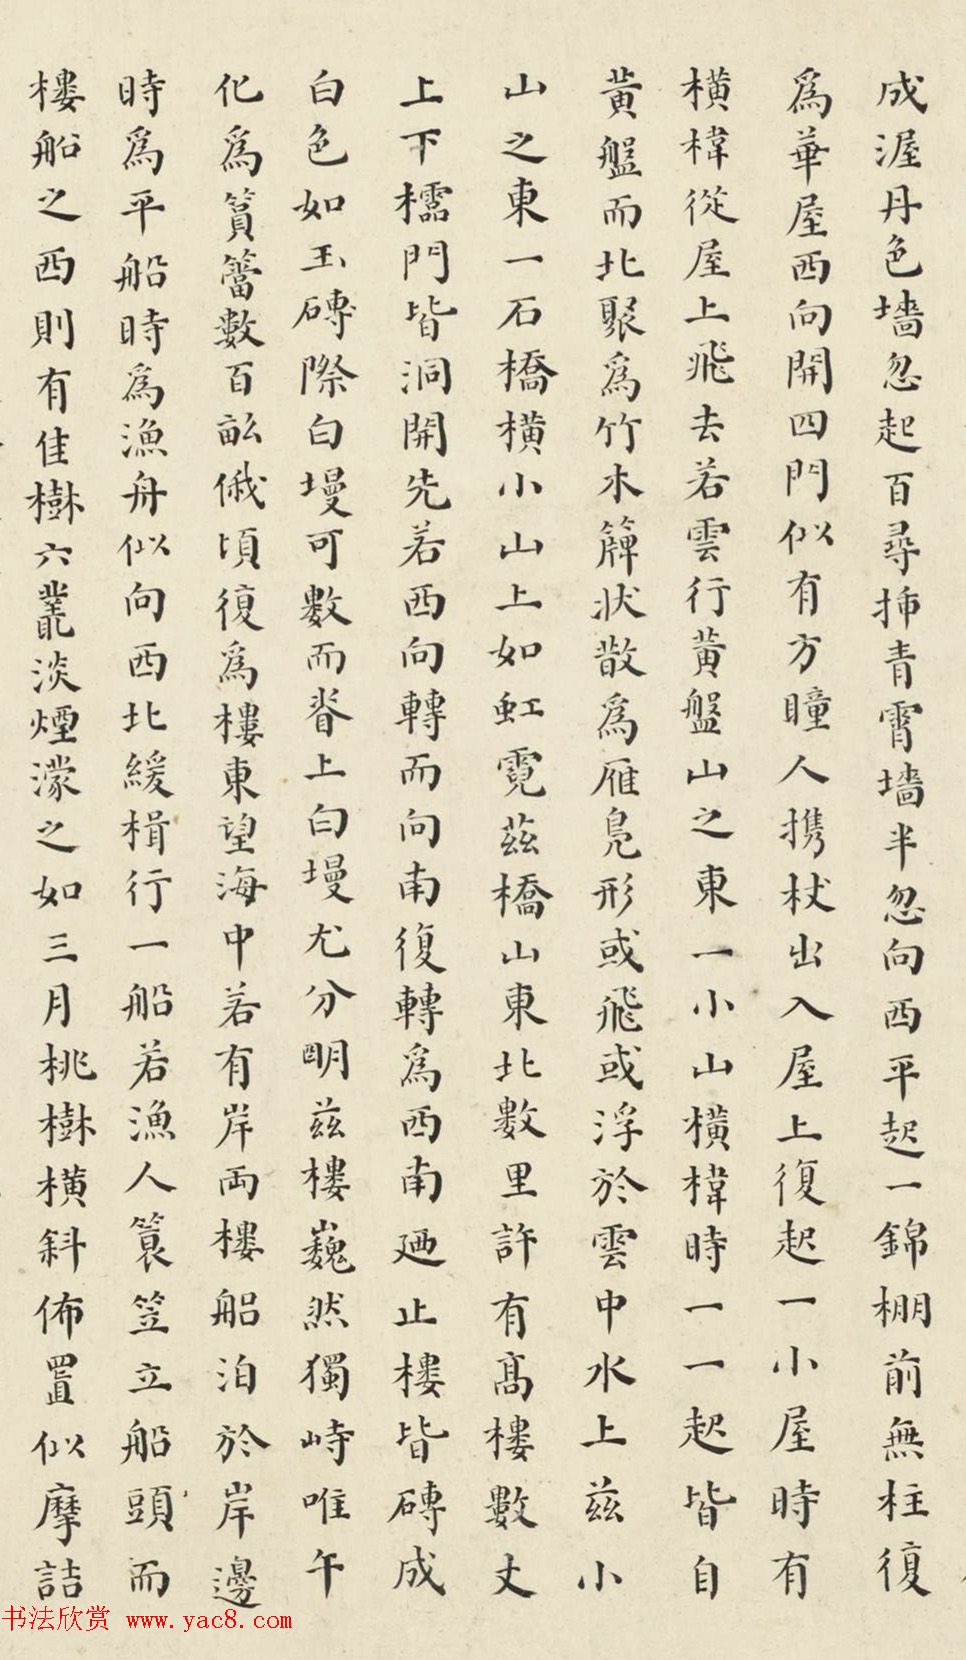 成渥丹色墻忽起百尋揷青霄墻半忽向西平起一錦棚前無柱復
為華屋西向開四門似有方瞳人携杖出入屋上復起一小屋時有
橫樟從屋上飛去若雲行黄盤山之東一小山橫樟時一一起皆自
黄盤而北聚為竹木簰狀散為雁鳧形或飛或浮於雲中水上茲小
山之東一石橋橫小山上如虹霓茲橋山東北數里許有髙樓數丈
上下櫺門皆洞開先若西向轉而向南復轉為西南廼止樓皆磚成
白色如玉磚際白墁可數而脊上白墁尤分明茲樓巍然獨峙唯午
化為篔簹數百畝俄頃復為樓東望海中若有岸兩樓船泊於岸邊
時為平船時為漁舟似向西北緩楫行一船若漁人簑笠立船頭而
樓船之西則有佳樹六叢淡煙濛之如三月桃樹橫斜佈置似摩詰
书法欣赏 www.yac8.com